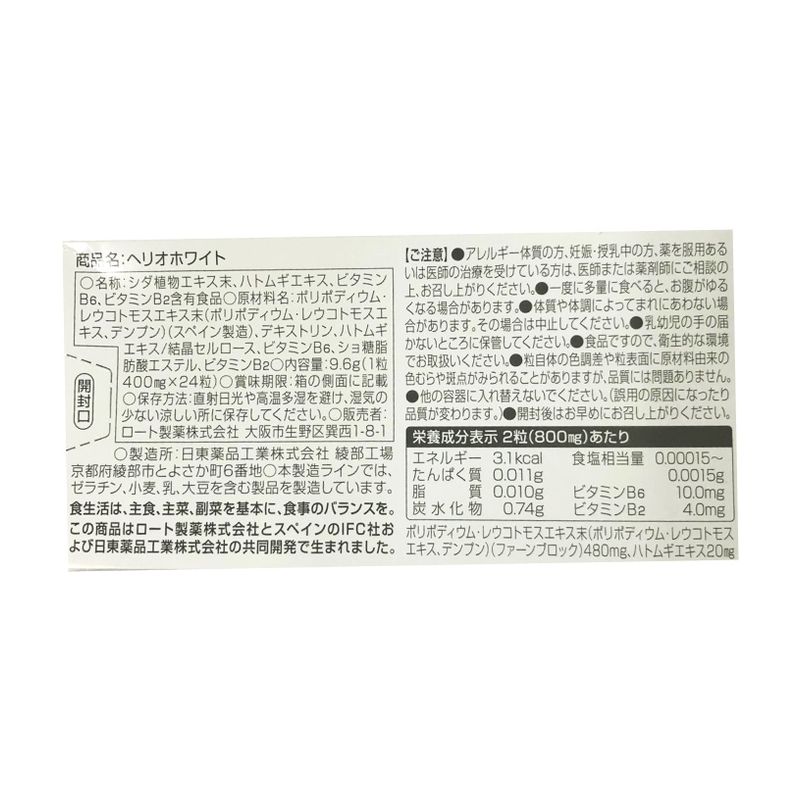 商品名:ヘリオホワイト
○名称:シダ植物エキス末、ハトムギエキス、ビタミン
B6、ビタミンB2含有食品○原材料名:ポリポディウム・
レウコトモスエキス末(ポリポディウム・レウコトモスエ
キス、デンプン)(スペイン製造)、デキストリン、ハトムギ
エキス/結晶セルロース、ビタミンB6、ショ糖脂
肪酸エステル、ビタミンB2○内容量:9.6g(1粒
400mg×24粒)○賞味期限:箱の側面に記載
○保存方法:直射日光や高温多湿を避け、湿気の
少ない涼しい所に保存してください。○販売者:
ロート製薬株式会社 大阪市生野区巽西1-8-1
開封口
○製造所:日東薬品工業株式会社 綾部工場
京都府綾部市とよさか町6番地○本製造ラインでは、
ゼラチン、小麦、乳、大豆を含む製品を製造しています。
食生活は、主食、主菜、副菜を基本に、食事のバランスを。
この商品はロート製薬株式会社とスペインのIFC社お
よび日東薬品工業株式会社の共同開発で生まれました。
【ご注意】●アレルギー体質の方、妊娠・授乳中の方、薬を服用ある
いは医師の治療を受けている方は、医師または薬剤師にご相談の
上、お召し上がりください。●一度に多量に食べると、お腹がゆる
くなる場合があります。●体質や体調によってまれにあわない場
合があります。その場合は中止してください。●乳幼児の手の届
かないところに保管してください。●食品ですので、衛生的な環境
でお取扱いください。●粒自体の色調差や粒表面に原材料由来の
色むらや斑点がみられることがありますが、品質には問題ありません。
●他の容器に入れ替えないでください。(誤用の原因になったり
品質が変わります。)●開封後はお早めにお召し上がりください。
栄養成分表示 2粒(800mg)あたり
エネルギー 3.1kcal 食塩相当量 0.00015~
たんぱく質 0.011g 0.0015g
脂質 0.010g ビタミンB6 10.0mg
炭水化物 0.74g ビタミンB2 4.0mg
ポリポディウム・レウコトモスエキス末(ポリポディウム・レウコトモス
エキス、デンプン)(ファーンブロック)480mg、ハトムギエキス20mg